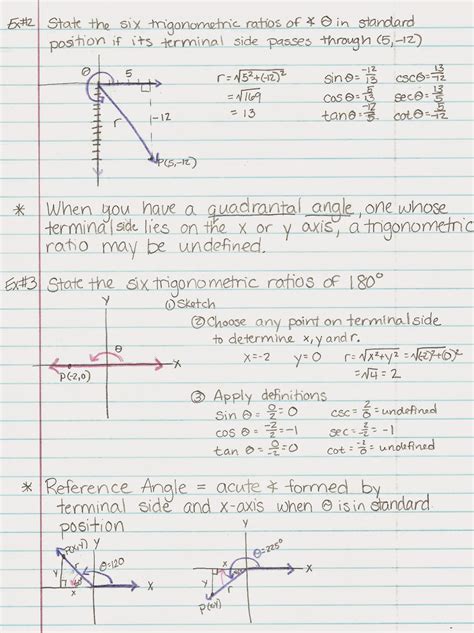 Ex#2 State the six trigonometric ratios of ∢ θ in standard
position if its terminal side passes through (5,-12)
θ 5
r -12
P(5,-12)
r = √5²+(-12)²
= √169
= 13
sin θ = -12/13 csc θ = 13/-12
cos θ = 5/13 sec θ = 13/5
tan θ = -12/5 cot θ = 5/-12
* When you have a quadrantal angle, one whose
terminal side lies on the x or y axis, a trigonometric
ratio may be undefined.
Ex#3 State the six trigonometric ratios of 180°
① Sketch
y
θ
x
P(-2,0)
② Choose any point on terminal side
to determine x, y and r.
x=-2 y=0 r=√x²+y² = √(-2)²+(0)²
= √4 = 2
③ Apply definitions
sin θ = 0/2 = 0 csc = 2/0 = undefined
cos θ = -2/2 = -1 sec = 2/-2 = -1
tan θ = 0/-2 = 0 cot = -2/0 = undefined
* Reference Angle = acute ∢ formed by
terminal side and x-axis when θ is in standard
position
P(x,y) y θ=120
y r 60° x
x
y θ=225°
x
y r x
P(x,y)